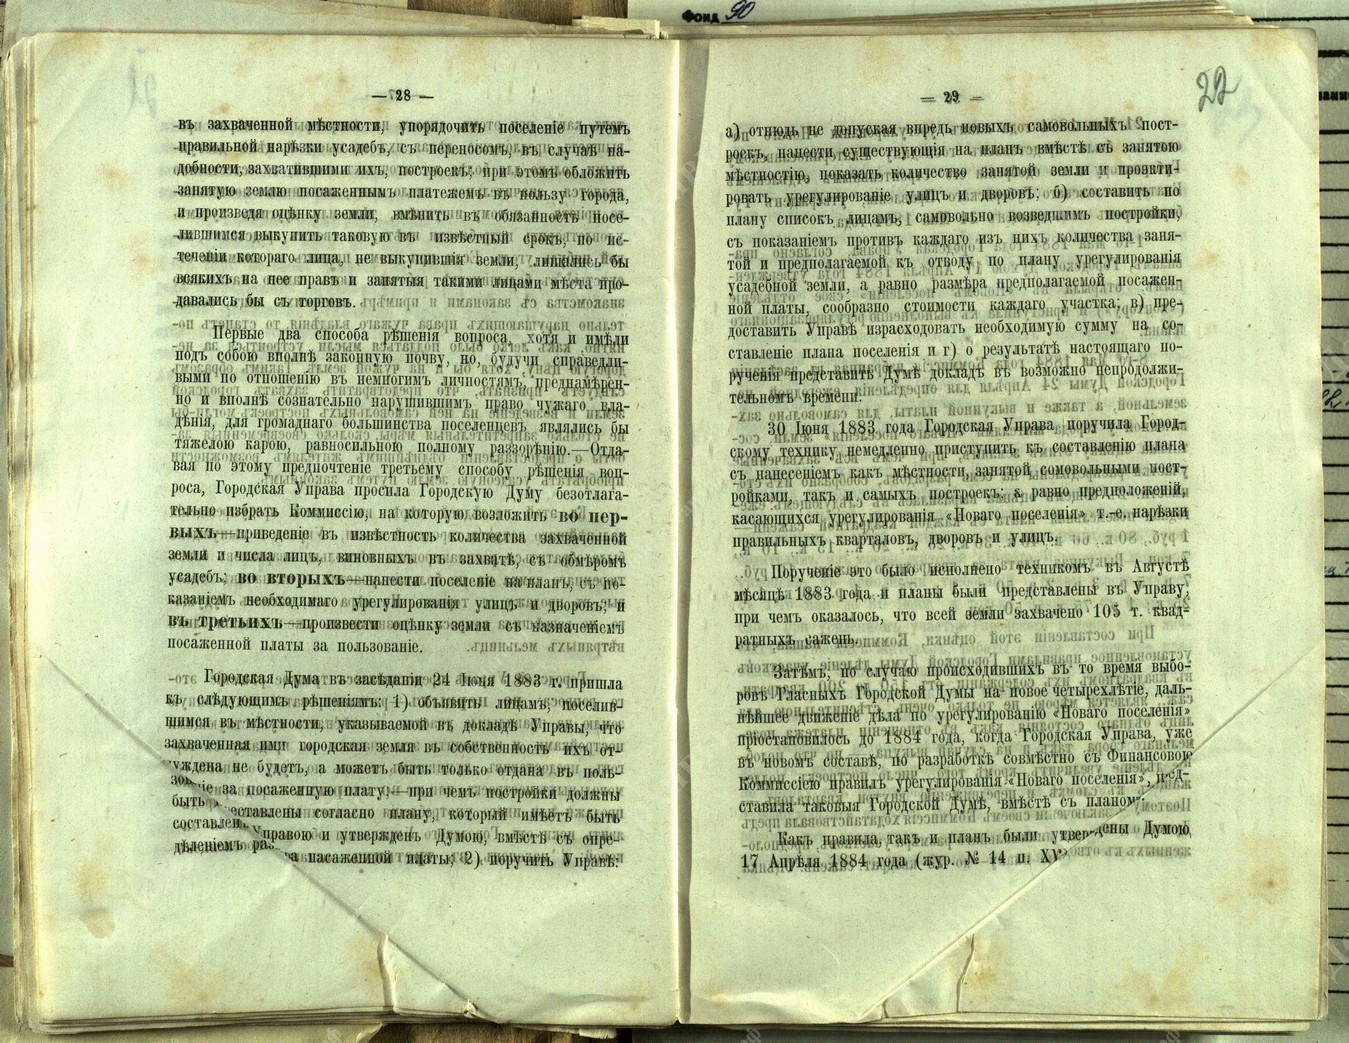 Фонд 90
— 28 —
въ захваченной мѣстности, упорядочить поселеніе путемъ
правильной нарѣзки усадебъ, съ переносомъ, въ случаѣ на-
добности, захватившими ихъ, построекъ; при этомъ обложить
занятую землю посаженнымъ платежемъ въ пользу города,
и произведя оцѣнку земли, вмѣнить въ обязанность посе-
лившимся выкупить таковую въ извѣстный срокъ, по ис-
теченіи котораго лица, не выкупившія земли, лишались бы
всякихъ на нее правъ и занятыя такими лицами мѣста про-
давались бы съ торговъ.
Первые два способа рѣшенія вопроса, хотя и имѣли
подъ собою вполнѣ законную почву, но, будучи справедли-
выми по отношенію въ немногимъ личностямъ, преднамѣрен-
но и вполнѣ сознательно нарушившимъ право чужаго вла-
дѣнія, для громаднаго большинства поселенцевъ являлись бы
тяжелою карою, равносильною полному раззорѣнію.—Отда-
вая по этому предпочтеніе третьему способу рѣшенія воп-
роса, Городская Управа просила Городскую Думу безотлага-
тельно избрать Коммиссію, на которую возложить во пер-
выхъ—приведеніе въ извѣстность количества захваченной
земли и числа лицъ, виновныхъ въ захватѣ, съ обмѣромъ
усадебъ; во вторыхъ—нанести поселеніе на планъ, съ по-
казаніемъ необходимаго урегулированія улицъ и дворовъ; и
въ третьихъ—произвести оцѣнку земли съ назначеніемъ
посаженной платы за пользованіе.
Городская Дума въ засѣданіи 24 Іюня 1883 г. пришла
къ слѣдующимъ рѣшеніямъ: 1) объявить лицамъ, поселив-
шимся въ мѣстности, указываемой въ докладѣ Управы, что
захваченная ими городская земля въ собственность ихъ от-
уждена не будетъ, а можетъ быть только отдана въ поль-
зо іе за посаженную плату;—при чемъ постройки должны
быть ставлены согласно плану, который имѣетъ быть
составлен Управою и утвержденъ Думою, вмѣстѣ съ опре-
дѣленіемъ раз а пасаженной платы; 2) поручить Управѣ:
— 29 —
22
а) отнюдь не допуская впредь новыхъ самовольныхъ пост-
роекъ, нанести существующія на планъ вмѣстѣ съ занятою
мѣстностію, показать количество занятой земли и проэкти-
ровать урегулированіе улицъ и дворовъ; б) составить по
плану списокъ лицамъ, самовольно возведшимъ постройки,
съ показаніемъ противъ каждаго изъ нихъ количества заня-
той и предполагаемой къ отводу по плану урегулированія
усадебной земли, а равно размѣра предполагаемой посажен-
ной платы, сообразно стоимости каждаго участка; в) пре-
доставить Управѣ израсходовать необходимую сумму на со-
ставленіе плана поселенія и г) о результатѣ настоящаго по-
рученія представить Думѣ докладъ въ возможно непродолжи-
тельномъ времени.
30 Іюня 1883 года Городская Управа поручила Город-
скому технику немедленно приступить къ составленію плана
съ нанесеніемъ какъ мѣстности, занятой сомовольными пост-
ройками, такъ и самыхъ построекъ; а равно предположеній,
касающихся урегулированія «Новаго поселенія» т.-е. нарѣзки
правильныхъ кварталовъ, дворовъ и улицъ.
Порученіе это было исполнено техникомъ въ Августѣ
мѣсяцѣ 1883 года и планы были представлены въ Управу;
при чемъ оказалось, что всей земли захвачено 105 т. квад-
ратныхъ сажень.
Затѣмъ, по случаю происходившихъ въ то время выбо-
ровъ Гласныхъ Городской Думы на новое четырехлѣтіе, даль-
нѣйшее движеніе дѣла по урегулированію «Новаго поселенія»
пріостановилось до 1884 года, когда Городская Управа, уже
въ новомъ составѣ, по разработкѣ совмѣстно съ Финансовою
Коммиссіею правилъ урегулированія «Новаго поселенія», п ед-
ставила таковыя Городской Думѣ, вмѣстѣ съ планом
Какъ правила такъ и планъ были утвер дены Думою
17 Апрѣля 1884 года (жур. № 14 п. XV